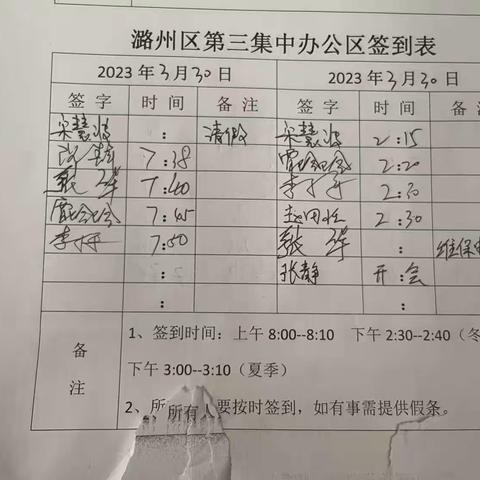 潞州区第三集中办公区签到表
2023 年 3 月 30 日 2023 年 3 月 30 日
签 字 时 间 备 注 签 字 时 间 备
宋慧 : 请假 宋慧 2:15
7:38 2:20
: 7:40 李 2:30
7:45 赵田 2:30
李 7:50 : 维保
: 张静 开:会
: :
备注
1、签到时间：上午 8:00--8:10 下午 2:30--2:40（冬
下午 3:00--3:10（夏季）
2、所有人要按时签到，如有事需提供假条。